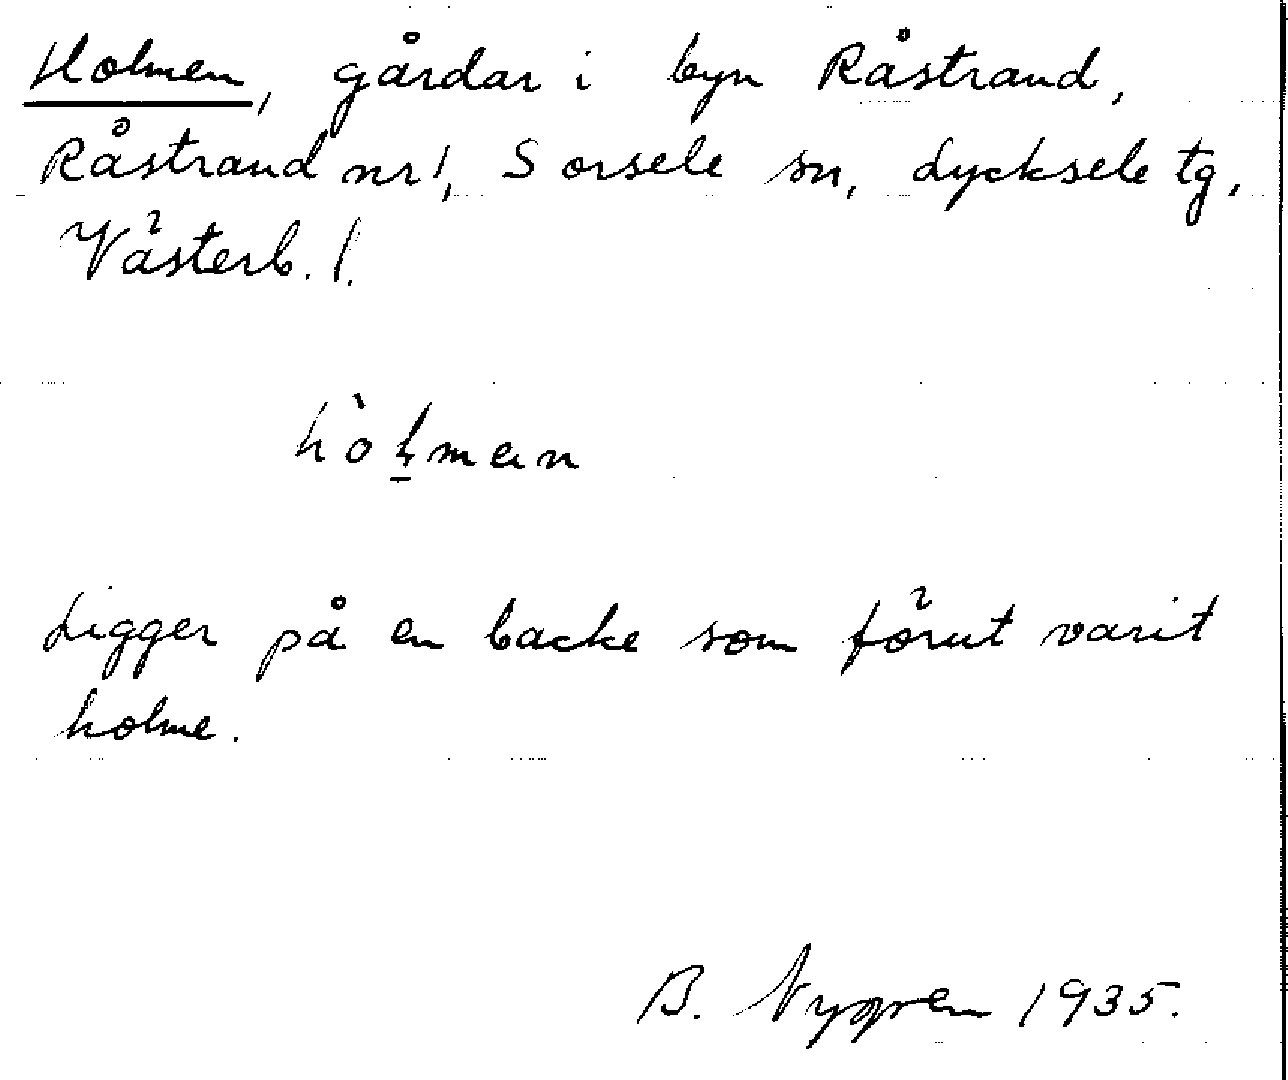 Holmen, gårdar i byn Råstrand,
Råstrand nr 1, Sorsele sn, Lycksele tg,
Västerb. l.
hòl̠mɐn
Ligger på en backe som förut varit
holme.
B. Nygren 1935.